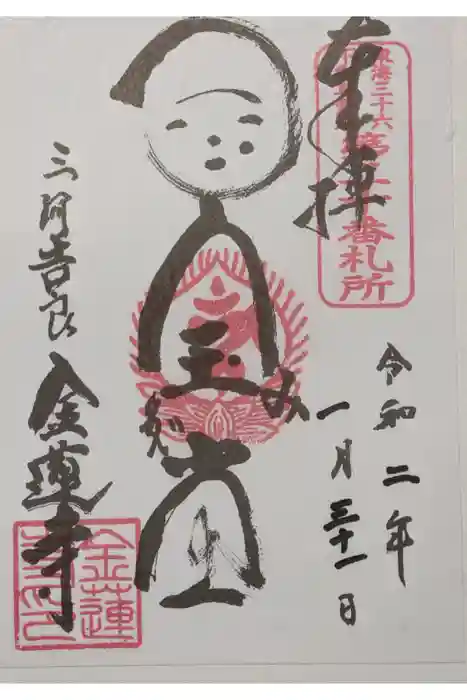 奉拝
東海三十六
番札所
宝
みだ
堂
令和二年
一月三十一日
三河吉良
金蓮寺
金蓮